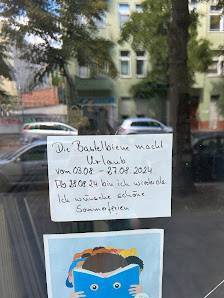 Die Bastelbiene macht
Urlaub
vom 03.08 - 27.08.2024
Ab 28.08.24 bin ich wieder da
Ich wünsche schöne
Sommerferien